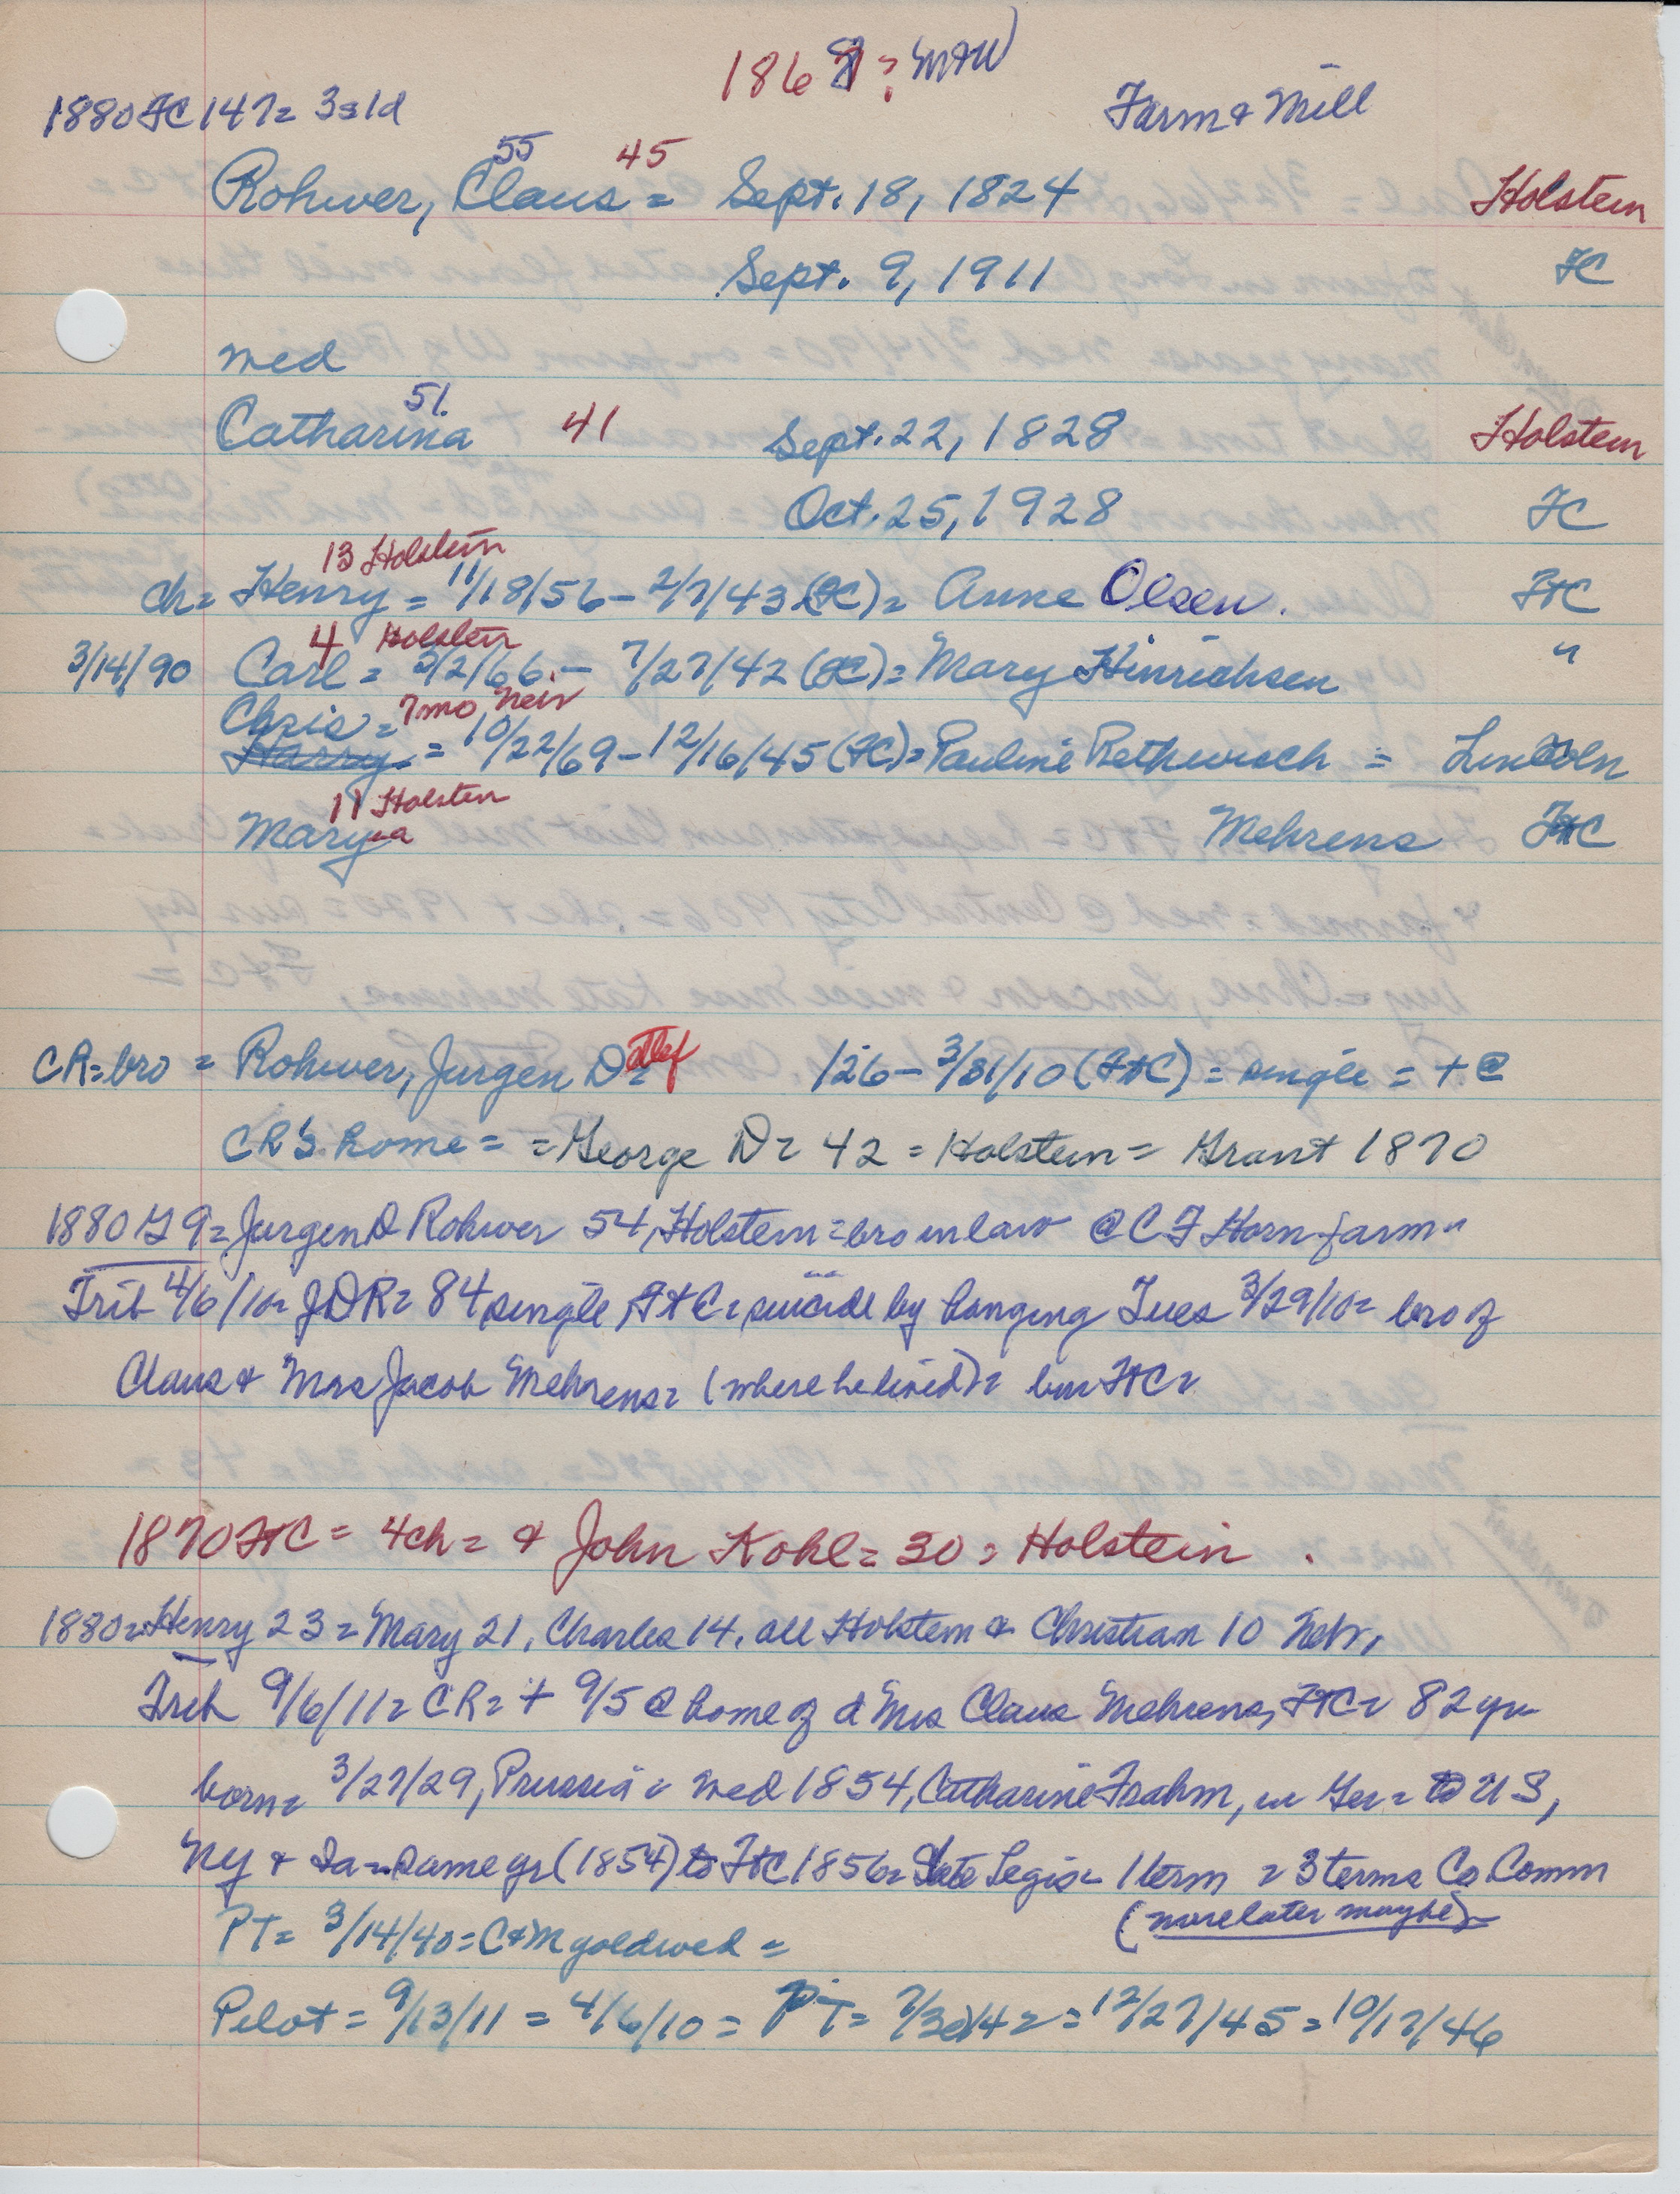 186 8 ? M+W
1880 FC 147= 3s1d
Farm & Mill
55 45
Rohwer, Claus = Sept. 18, 1824 Holstein
Sept. 9, 1911 FC
med
51. 41
Catharina Sept. 22, 1828 Holstein
Oct. 25, 1928 FC
13 Holstein
Ch= Henry = 11/18/56 - 2/7/43 (FC) = Anne Olsen. FtC
4 Holstein
3/14/90 Carl = 3/2/66 - 7/27/42 (FC) = Mary Hinrichsen "
Chris = 7mo Neb
Harry = 10/22/69 - 12/16/45 (FC) = Pauline Rethwisch = Lincoln
11 Holsten
Mary a Mehrens FtC
CR=bro = Rohwer, Jurgen Detlef = /26 - 3/31/10 (FtC) = single = + @
CR's home = = George D= 42 = Holstein = Grant 1870
1880 G 9= Jurgen D Rohwer 54, Holstein = bro in law @ C F Horn farm
Trib 4/6/10= JDR= 84, single, FtC= suicide by hanging Tues 3/29/10= bro of
Claus & Mrs Jacob Mehrens= (where he lived)= bur FtC=
1870 FtC = 4ch= & John Kohl= 30 = Holstein .
1880= Henry 23= Mary 21, Charles 14, all Holstein & Christian 10 Neb,
Trib 9/6/11= CR= + 9/5 @ home of d Mrs Claus Mehrens, FtC= 82 yr
born= 3/27/29, Prussia = med 1854, Catharine Frahm, in Ger = to US,
NY & Ia = same yr (1854) to FtC 1856= State Legis= 1 term = 3 terms Co Comm
(more later maybe)
PT= 3/14/40 = C&M gold wed =
Pilot = 9/13/11 = 4/6/10 = PT= 7/30/42 = 12/27/45 = 10/17/46